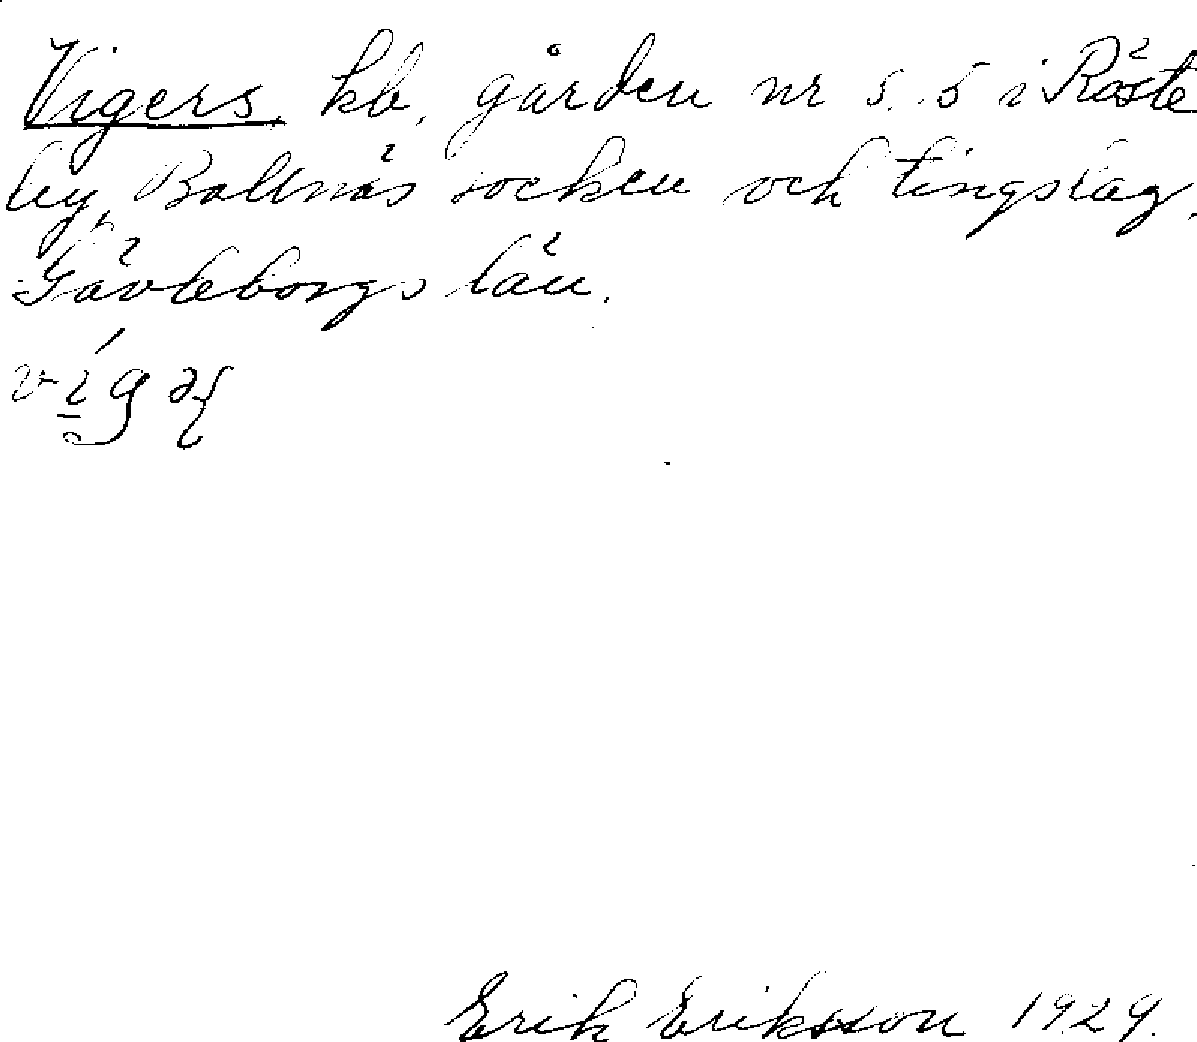 Vigers, kb, gården nr 5. 5 i Räste
by, Bollnäs socken och tingslag,
Gävleborgs län.
Erik Eriksson 1929.